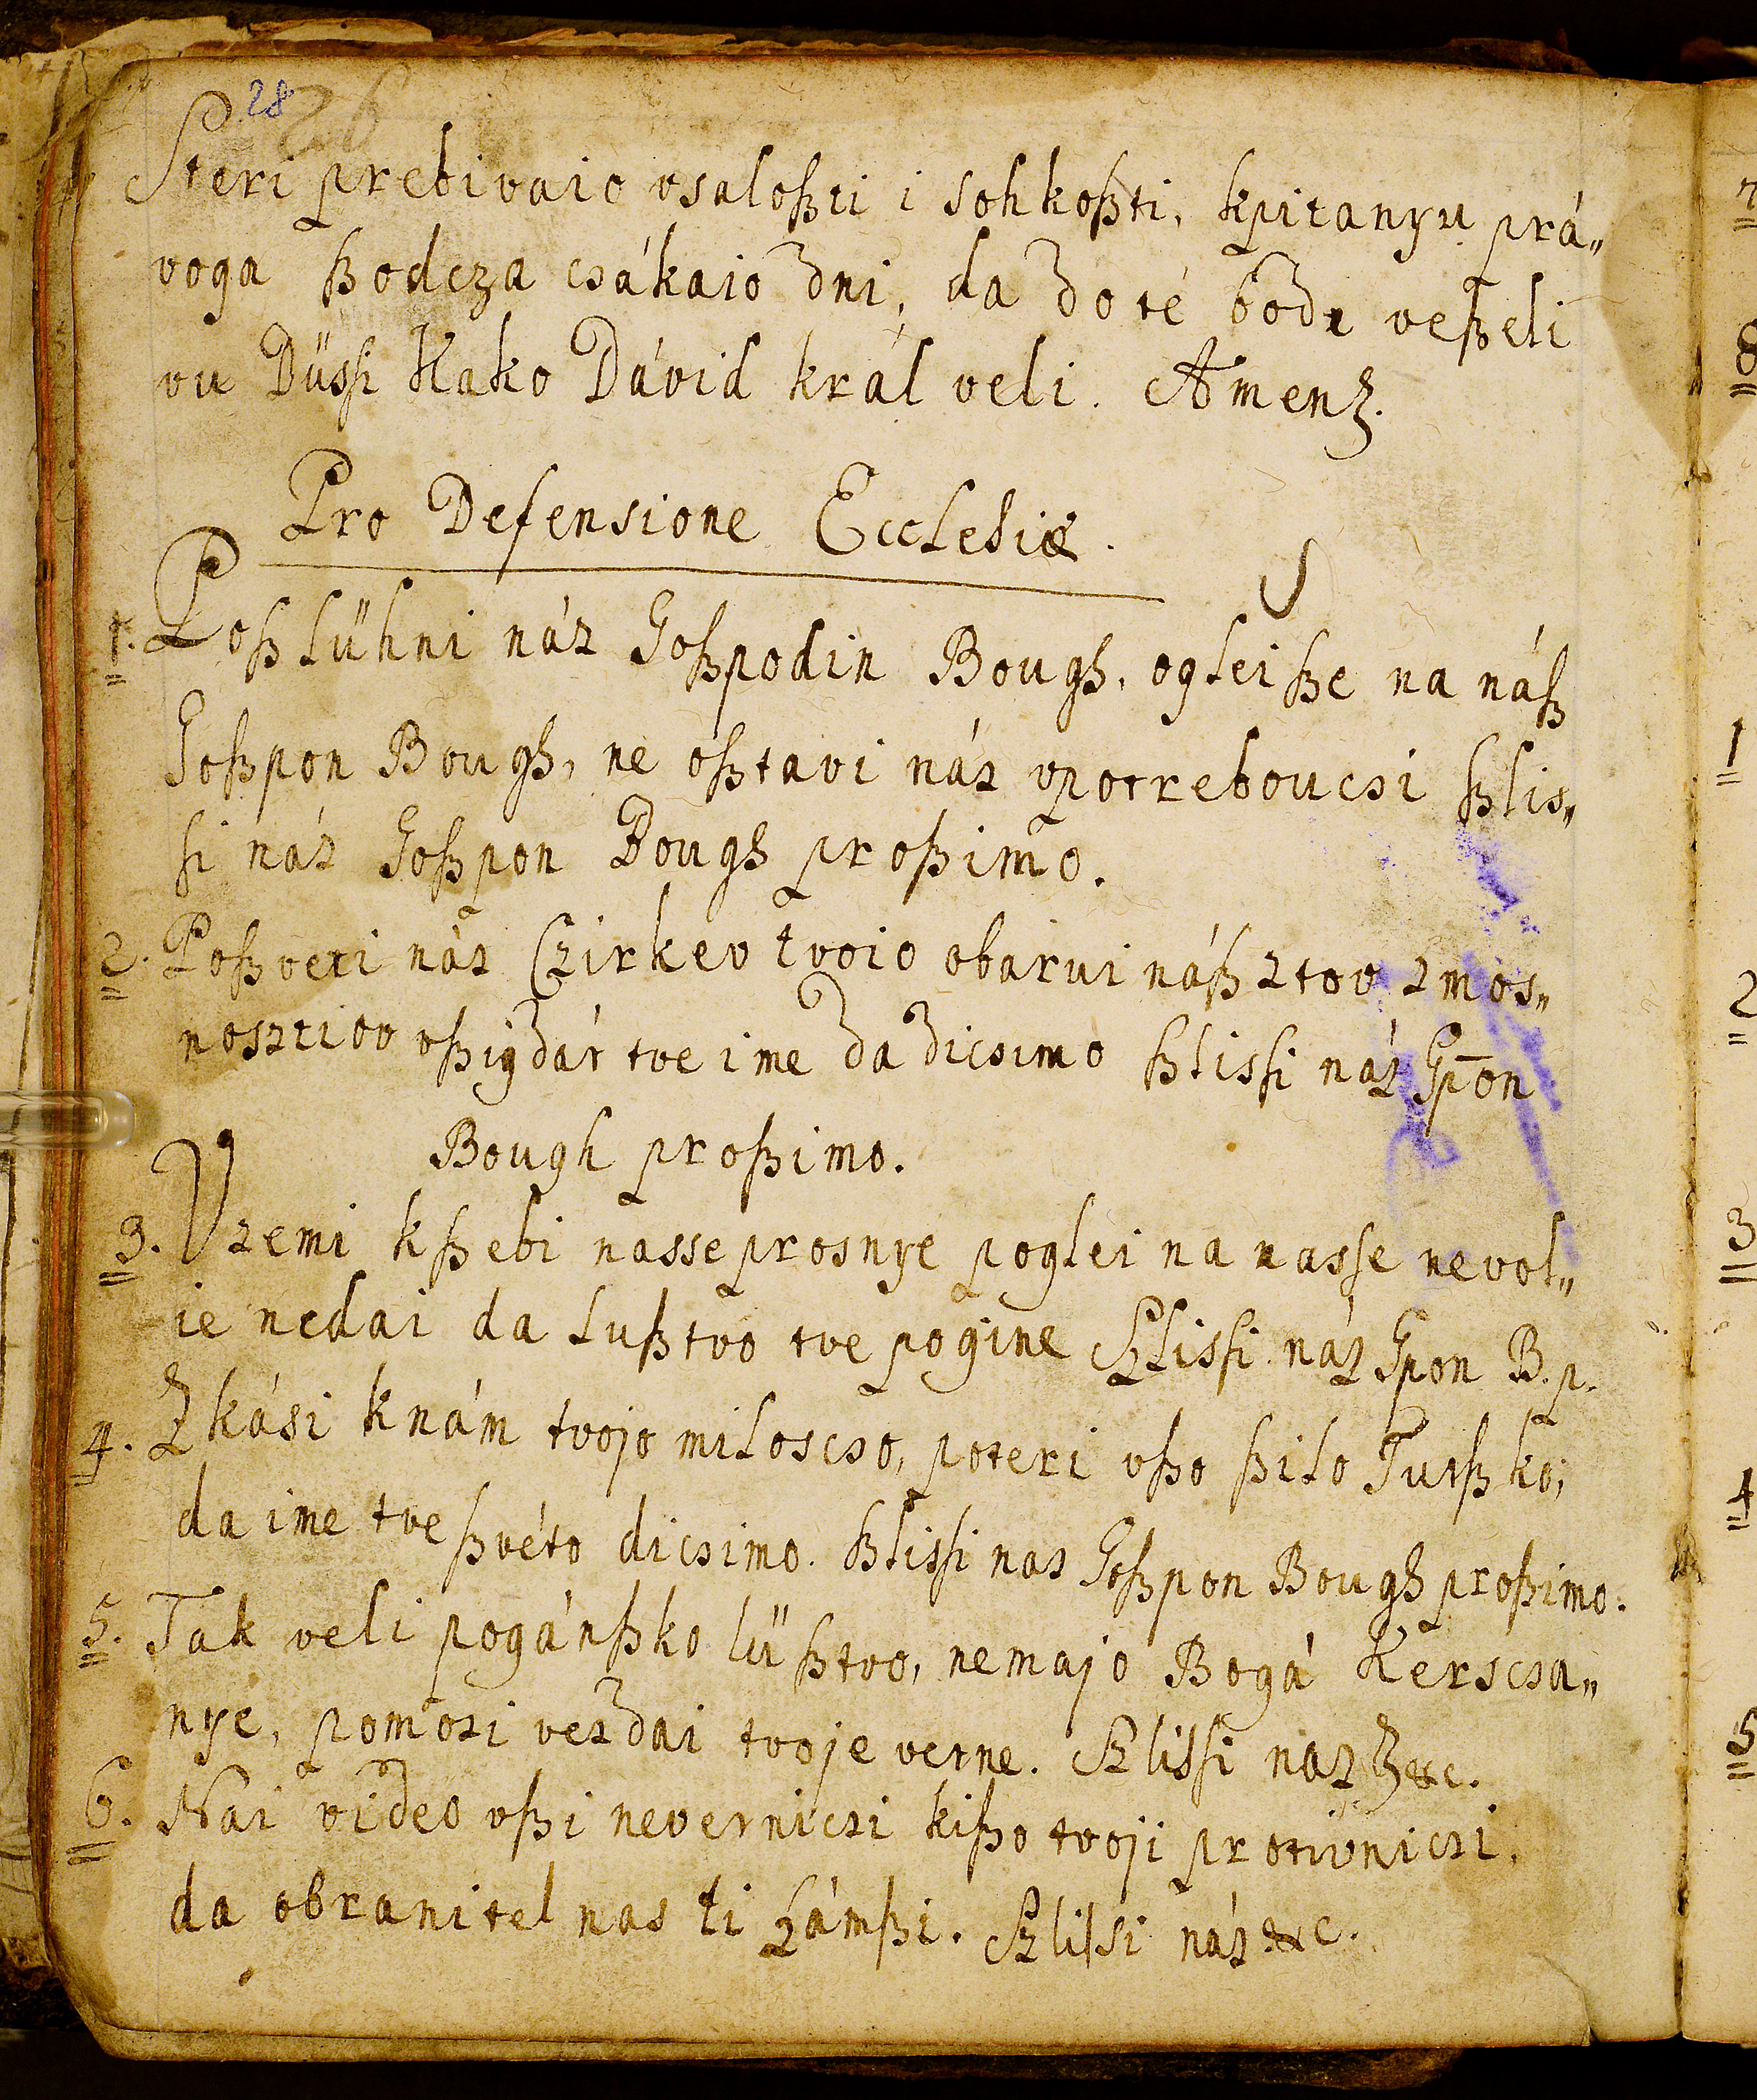 28 26
Steri prebivaio vsaloßti i sohkoßti, kpitanyu prá„
voga ßodcza csákaio dni, da do té bode veßeli
vu Düssi Kako Dávid král veli. Amen.
Pro Defensione Ecclesiæ.
1. Poßlühni náz Goßpodin Bough, oglei ße na náß
Goßpon Bough, ne oßtavi náz vpotreboucsi ßlis„
si náz Goßpon Bough proßimo.
2. Poßveti náz Czirkev tvoio obarui náß ztov zmos„
nosztiov vßigdár tve ime da dicsimo ßlissi náz Gp̄on
Bough proßimo.
3. Vzemi kßebi nasse prosnye poglei na nasse nevol„
ie nedai da lußtvo tve pogine Szlissi náz Gpon B. p.
4. Zkási knám tvojo miloscso, poteri vßo ßilo Turßko,
da ime tve ßvéto dicsimo. ßlissi nas Goßpon Bough proßimo.
5. Tak veli pogánßko lüßtvo, nemajo Bogá Kerscsa„
nye, pomozi vezdai tvoje verne. Szlissi naz &c.
6. Nai video vßi neverniczi kißo tvoji protivniczi,
da obranitel nas ti ßámßi. Szlissi náz &c.
1
2
3
4
5